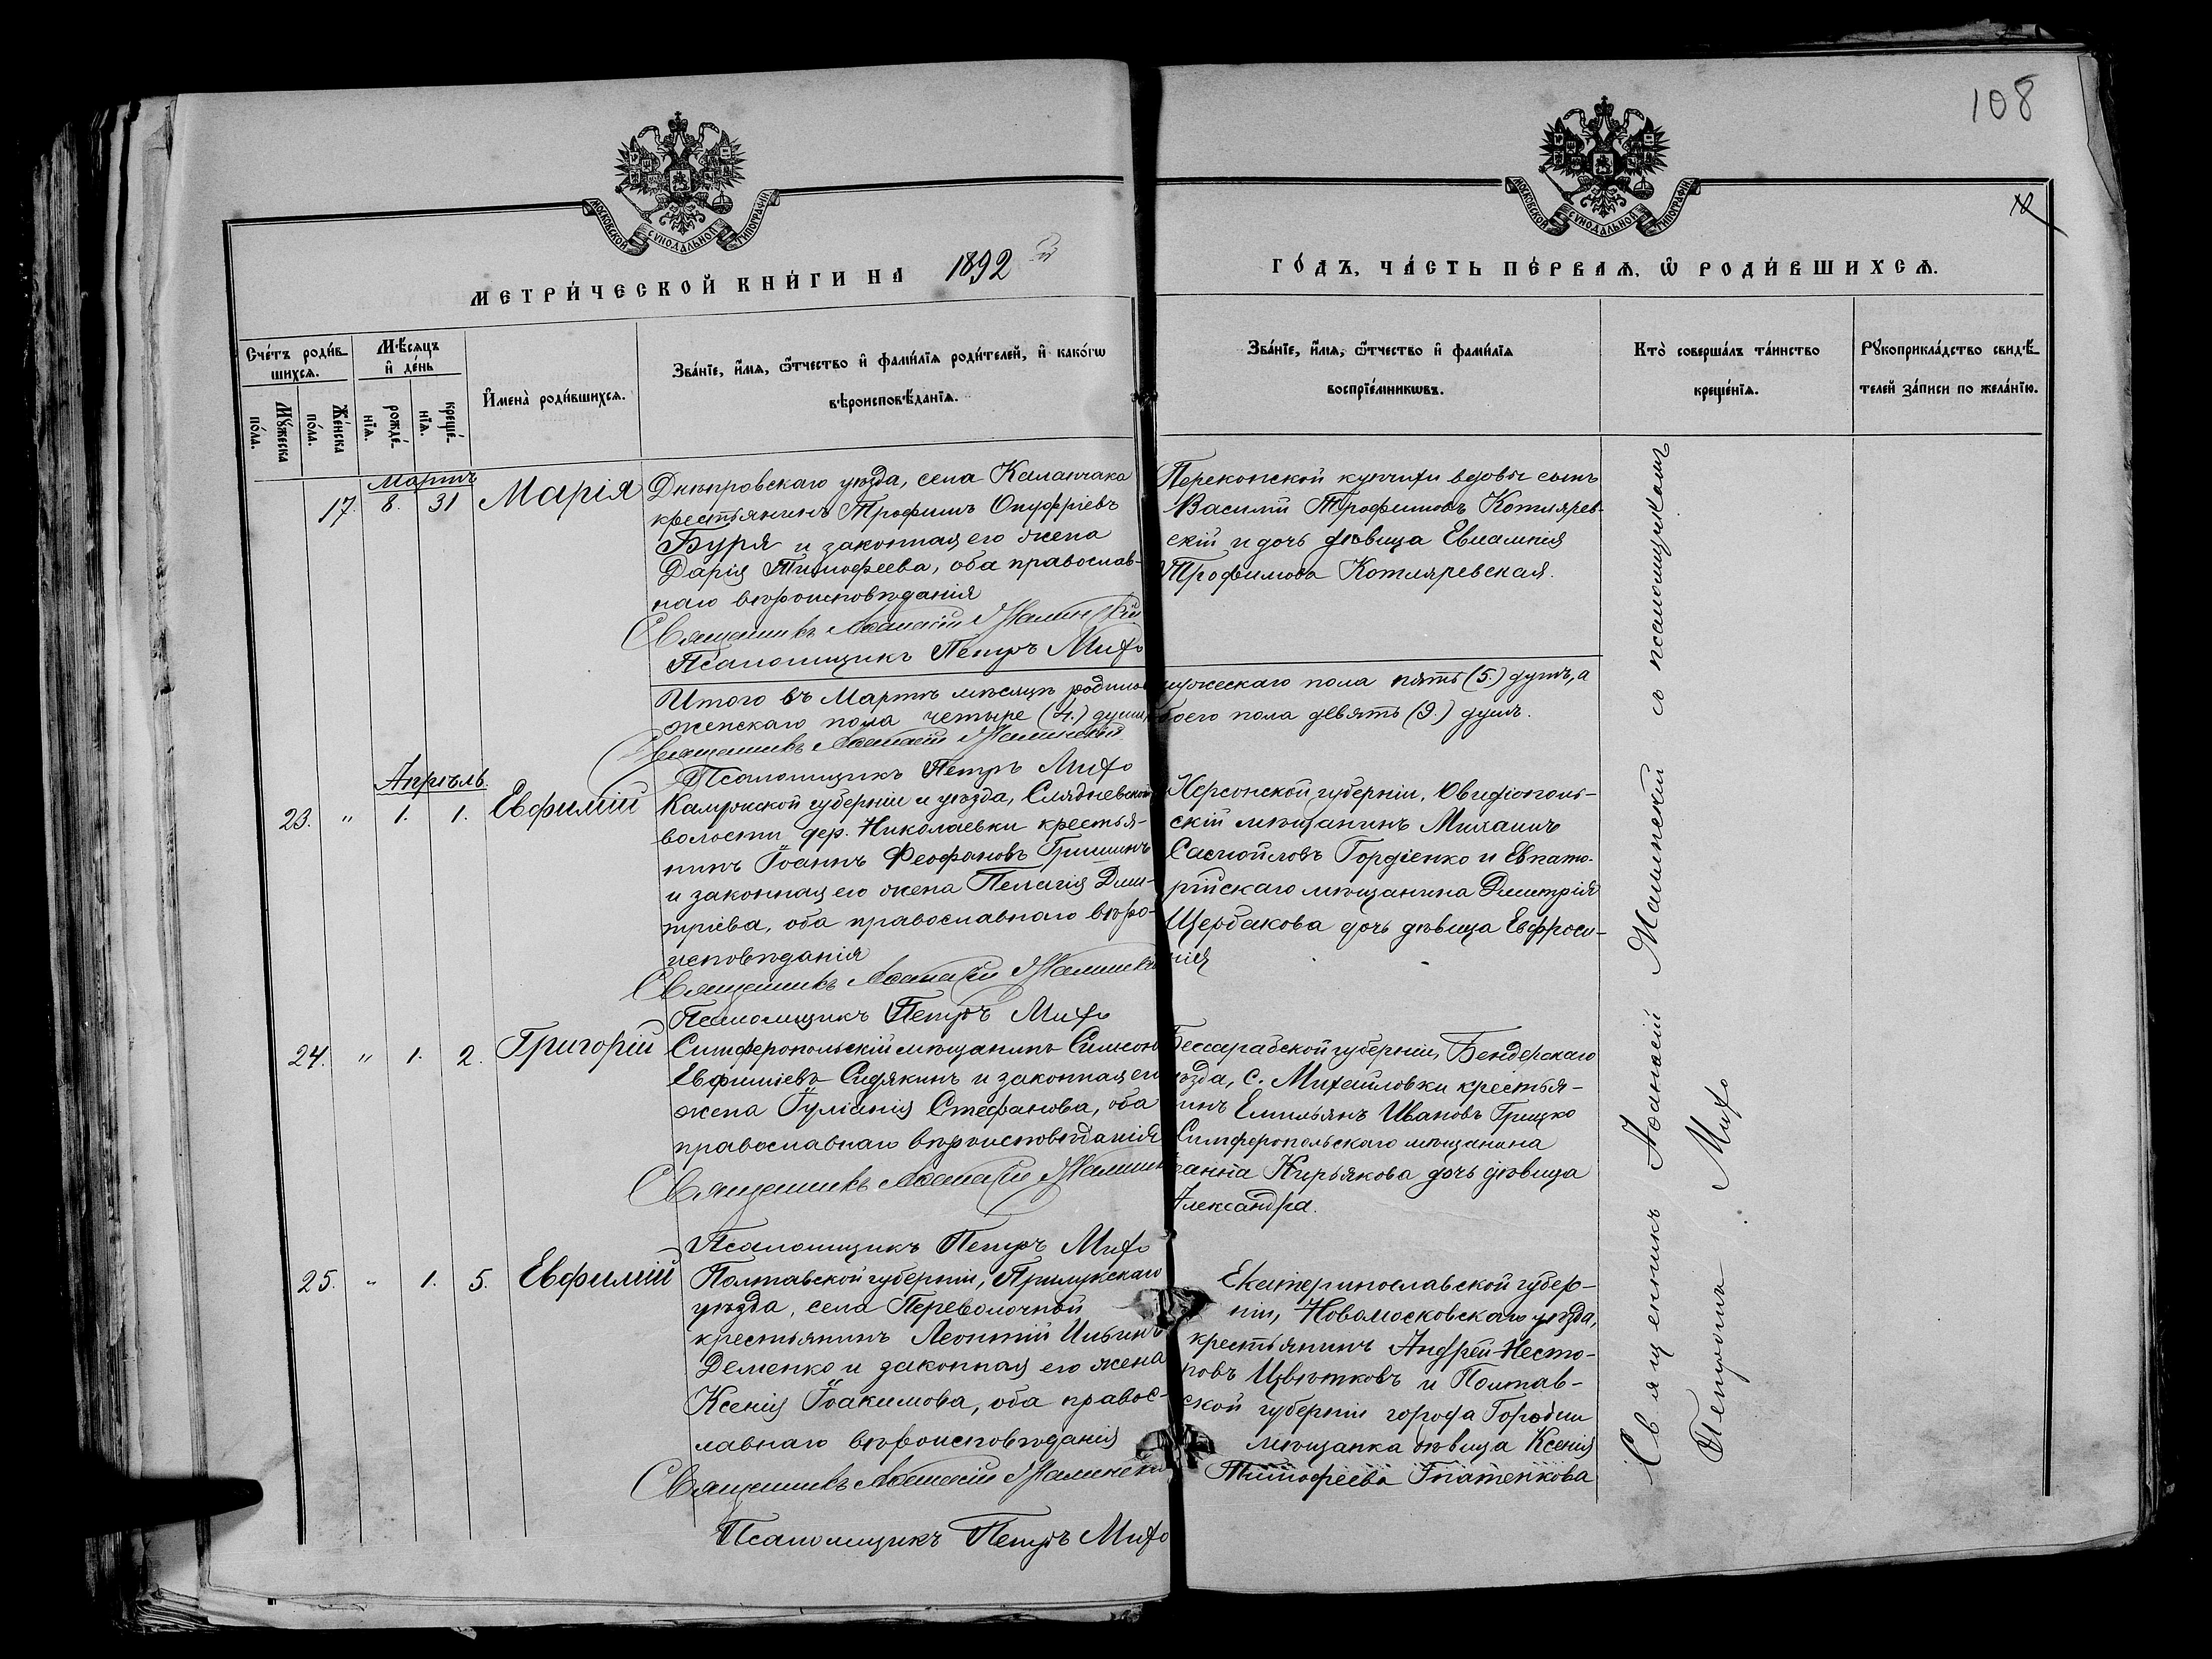 108
МОСКОВСКОЙ СѴНОДАЛЬНОЙ ТИПОГРАФІИ
МОСКОВСКОЙ СѴНОДАЛЬНОЙ ТИПОГРАФІИ
МЕТРИ́ЧЕСКОЙ КНИ́ГИ НА 1892 й
ГО́ДЪ, ЧА́СТЬ ПЕ́РВАѦ, Ѿ РОДИ́ВШИХСѦ.
Сче́тъ роди́в-
шихсѧ.
Мѹ́жеска
по́ла.
Же́нска
по́ла.
Мѣ́сяцъ
и҆ де́нь
рожде́-
нїѧ.
креще́-
нїѧ.
И҆мена̀ роди́вшихсѧ.
Зва́нїе, и҆́мѧ, ѻ҆́тчество и҆ фами́лїѧ роди́телей, и҆ како́гѡ
вѣроисповѣ́данїѧ.
Зва́нїе, и҆́мѧ, ѻ҆́тчество и҆ фами́лїѧ
воспрїе́мникѡвъ.
Кто̀ соверша́лъ та́инство
креще́нїѧ.
Рѹкоприкла́дство свидѣ́-
телей за́писи по жела́нїю.
Мартъ
17. 8. 31 Марія
Днѣпровскаго уѣзда, села Каланчака
крестьянинъ Трофимъ Онуфріевъ
Буря и законная его жена
Дарія Тимофеева, оба православ-
наго вѣроисповѣданія
Священникъ Аѳанасій Малинскій
Псаломщикъ Петръ Михо
Перекопской купчихи вдовы сынъ
Василій Трофимовъ Котлярев-
скій и дочь дѣвица Евлампія
Трофимова Котляревская.
Итого въ Мартѣ мѣсяцѣ родило мужескаго пола пять (5.) душъ, а
женскаго пола четыре (4.) души, обоего пола девять (9.) душъ.
Священникъ Аѳанасій Малинскій
Псаломщикъ Петръ Михо
Апрѣль.
23. " 1. 1. Евфимій
Калужской губерніи и уѣзда,
волости дер. Николаевки крестья-
нинъ Іоаннъ Феофановъ Гришинъ
и законная его жена Пелагія Дми-
тріева, оба православнаго вѣро-
исповѣданія
Священникъ Аѳанасій Малинскій
Псаломщикъ Петръ Михо
Херсонской губерніи, Овидіополь-
скій мѣщанинъ Михаилъ
Самойловъ Гордіенко и Евпато-
рійскаго мѣщанина Дмитрія
Щербакова дочь дѣвица Евфроси-
нія
24. " 1. 2. Григорій
Симферопольскій мѣщанинъ Симеонъ
Евфиміевъ Сидякинъ и законная его
жена Іуліанія Стефанова, оба
православнаго вѣроисповѣданія
Священникъ Аѳанасій Малинскій
Псаломщикъ Петръ Михо
Бессарабской губерніи, Бендерскаго
уѣзда, с. Михайловки крестья-
нинъ Емильянъ Ивановъ Грицко
Симферопольскаго мѣщанина
Іоанна Кирьякова дочь дѣвица
Александра.
25. " 1. 5. Евфимій
Полтавской губерніи, Прилукскаго
уѣзда, села Переволочной
крестьянинъ Леонтій Ильинъ
Деменко и законная его жена
Ксенія Іоакимова, оба правос-
лавнаго вѣроисповѣданія
Священникъ Аѳанасій Малинскій
Псаломщикъ Петръ Михо
Екатеринославской губер-
ніи, Новомосковскаго уѣзда,
крестьянинъ Андрей Несто-
ровъ Цвѣтковъ и Полтав-
ской губерніи города
мѣщанка дѣвица Ксенія
Тимофеева Гнатенкова
Священникъ Аѳанасій Малинскій съ псаломщикомъ
Петромъ Михо